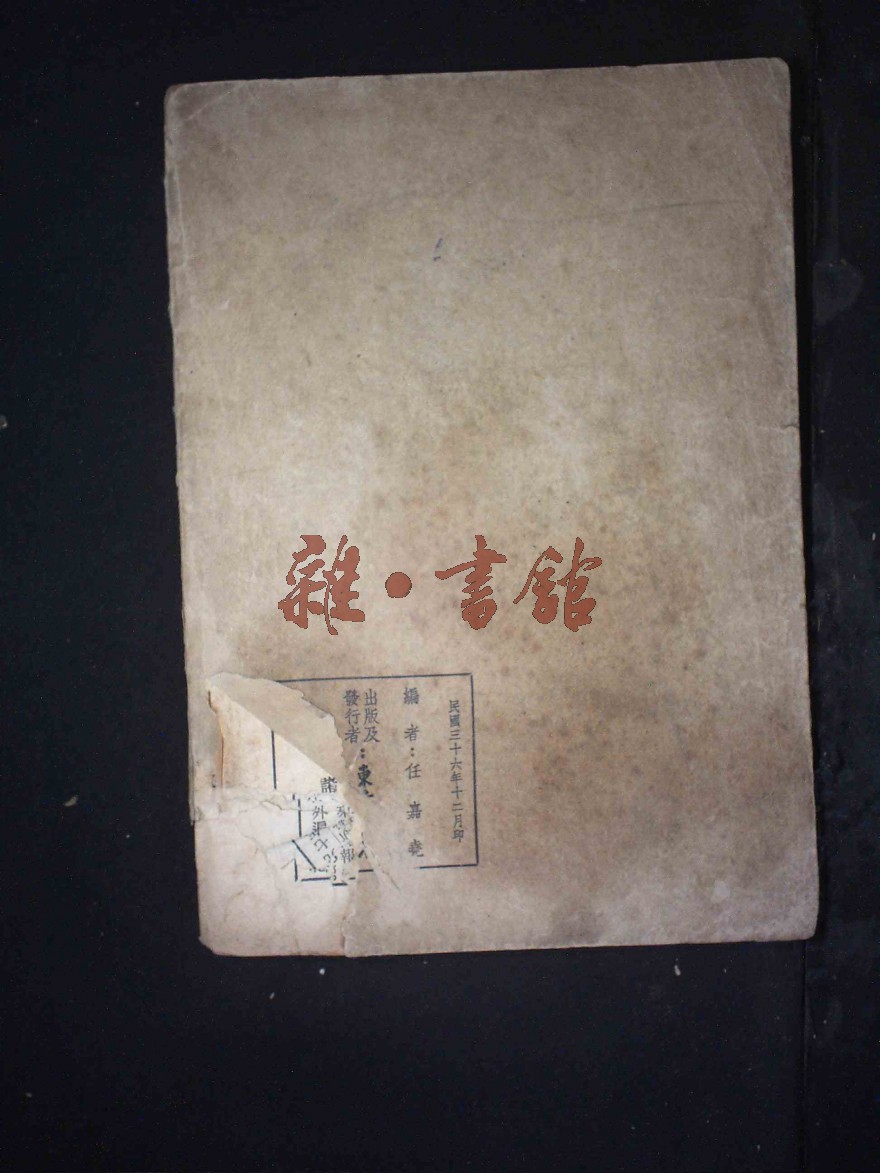 雜·書館
民國三十六年十二月印
編者：任嘉堯
出版及
發行者：東